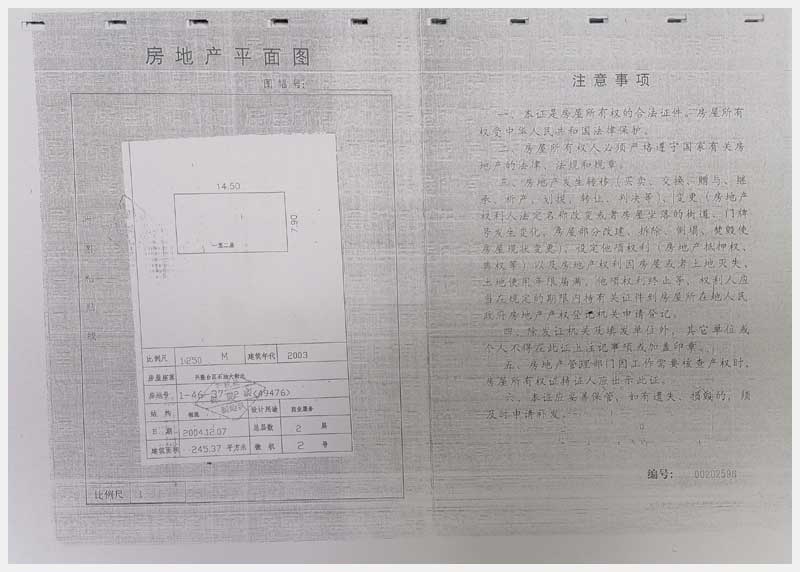 房地产平面图
图幅号:
14.50
7.90
一至二层
比例尺 14250 M 建筑年代 2003
房屋座落
房地号 1-46
结构 设计用途 商业服务
日期 2004.12.07 总层数 2 层
建筑面积 245.37 平方米 微机 2 号
比例尺 1
注意事项
一、本证是房屋所有权的合法证件。房屋所有
权受中华人民共和国法律保护。
二、房屋所有权人必须严格遵守国家有关房
地产的法律、法规和规章。
三、房地产发生转移（买卖、交换、赠与、继
承、析产、划拨、转让、判决等）、变更（房地产
权利人法定名称改变或者房屋坐落的街道、门牌
号发生变化，房屋部分改建、拆除、倒塌、焚毁使
房屋现状变更）、设定他项权利（房地产抵押权、
典权等）以及房地产权利因房屋或者土地灭失、
土地使用年限届满、他项权利终止等，权利人应
当在规定的期限内持有关证件到房屋所在地人民
政府房地产产权登记机关申请登记。
四、除发证机关及填发单位外，其它单位或
个人不得在此证上注记事项或加盖印章。
五、房地产管理部门因工作需要核查产权时，
房屋所有权证持证人应出示此证。
六、本证应妥善保管，如有遗失、损毁的，须
及时申请补发。
编号: 00202596